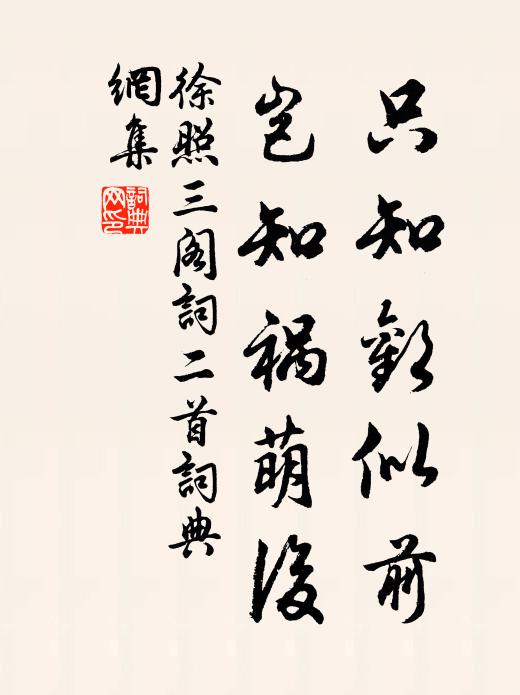 只知歡似前
豈知禍萌後
徐照三閣詞二首詞典
網集
詞典
网印